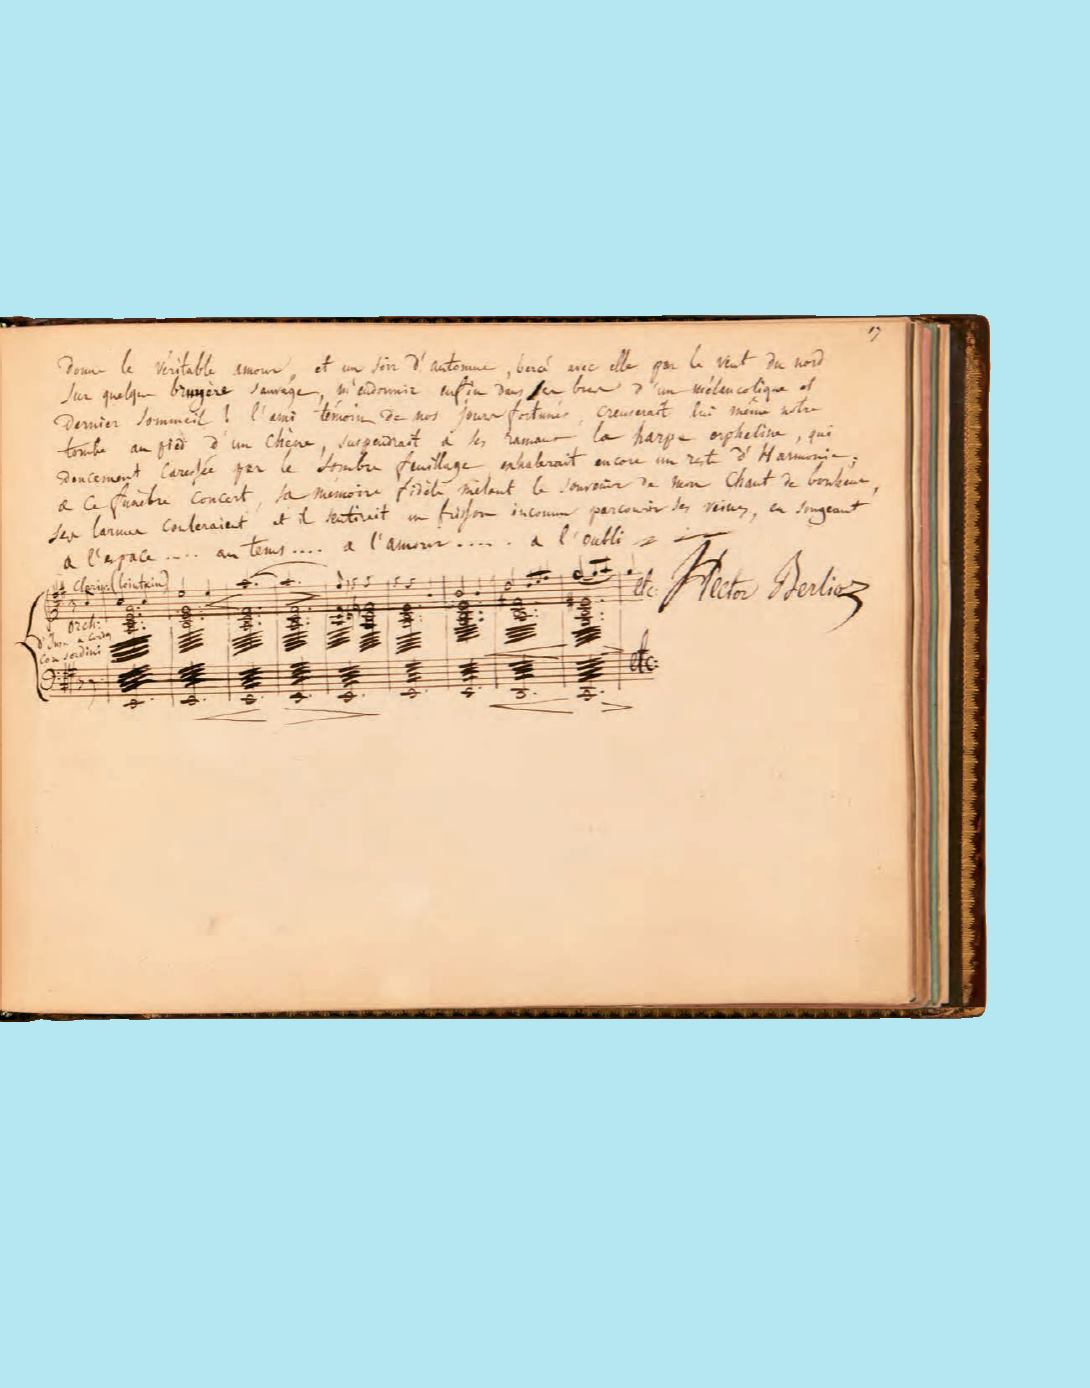 17
donne le véritable amour, et un soir d'automne, bercé avec elle par le vent du nord
sur quelque bruyère sauvage, m'endormir enfin dans ses bras d'un mélancolique et
dernier sommeil ! l'ami témoin de nos jours fortunés, creuserait lui même notre
tombe au pied d'un Chêne, suspendrait à ses rameaux la harpe orpheline, qui
doucement Caressée par le sombre feuillage exhalerait encore un reste d'Harmonie ;
à ce funèbre concert, sa mémoire fidèle mêlant le souvenir de mon Chant de bonheur,
ses larmes Couleraient et il sentirait un frisson inconnu parcourir ses veines, en songeant
à l'espace .... au tems .... à l'amour ..... à l'oubli
Clarin: (lointain)
Orch:
Con sordini
etc:
etc:
Hector Berlioz